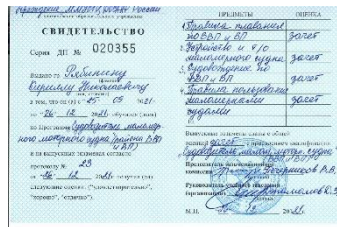 СВИДЕТЕЛЬСТВО
Серия ДП № 020355
Выдано Рябинину
Кириллу Николаевичу
в том, что он (а) с "25" 09 2021г.
по "26" 12 2021 обучался (лась)
по программе Судоводитель маломер-
ного моторного судна (район ВВП
и ВП)
и на выпускных экзаменах согласно
протоколу № 23
от "26" 12 2021 получил (ла)
следующие оценки ("удовлетворительно",
"хорошо", "отлично").
ПРЕДМЕТЫ ОЦЕНКА
1. Правила плавания
по ВВП и ВП зачет
2. Устройство и т/о
маломерного судна зачет
3. Судовождение по
ВВП и ВП зачет
4. Правила пользования
маломерными зачет
судами
Выпускные экзамены сданы с общей
оценкой зачет
Судоводитель маломер. мотор. судна
Председатель
комиссии
Руководитель учебного заведения
М.П. 26 12 2021г.